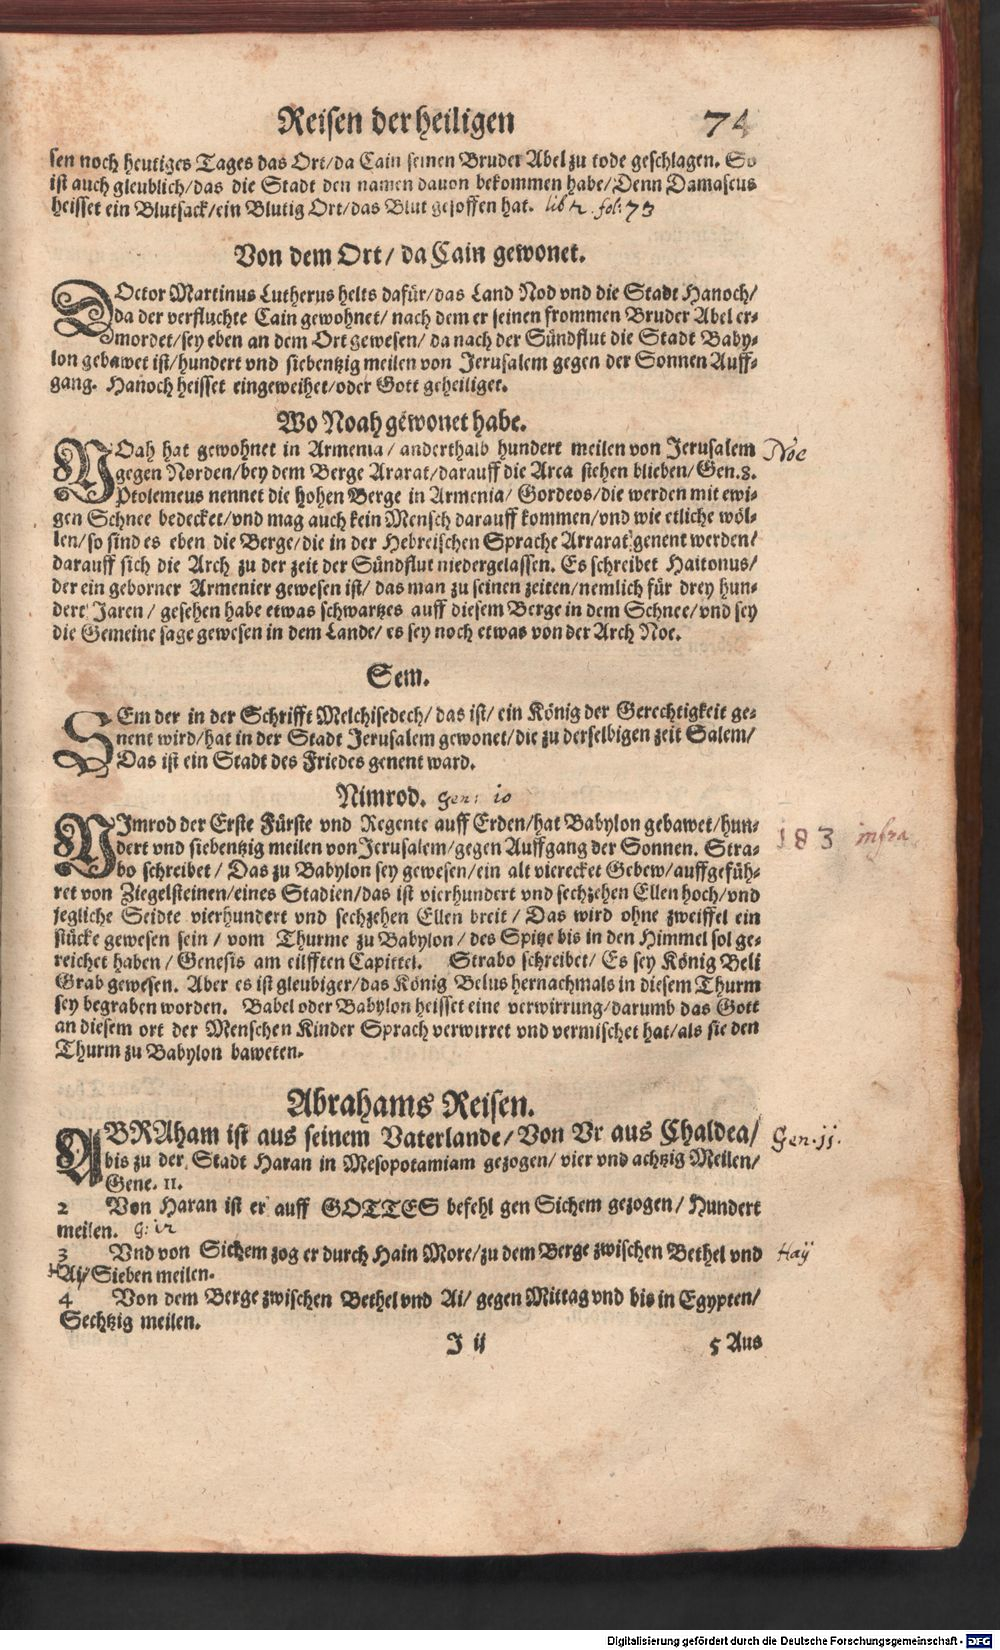 Reisen der heiligen 74
sen noch heutiges Tages das Ort/da Cain seinen Bruder Abel zu tode geschlagen. So
ist auch gleublich/das die Stadt den namen dauon bekommen habe/Denn Damascus
heisset ein Blutsack/ein Blutig Ort/das Blut gesoffen hat. lib 2. fol: 73
Von dem Ort/ da Cain gewonet.
DOctor Martinus Lutherus helts dafür/das Land Nod vnd die Stadt Hanoch/
da der verfluchte Cain gewohnet/ nach dem er seinen frommen Bruder Abel er-
mordet/sey eben an dem Ort gewesen/ da nach der Sündflut die Stadt Baby-
lon gebawet ist/hundert vnd siebentzig meilen von Jerusalem gegen der Sonnen Auff-
gang. Hanoch heisset eingeweihet/oder Gott geheiliget.
Wo Noah gewonet habe.
NOah hat gewohnet in Armenia/ anderthalb hundert meilen von Jerusalem Noe
gegen Norden/bey dem Berge Ararat/darauff die Arca stehen blieben/Gen.8.
Ptolemeus nennet die hohen Berge in Armenia/ Gordeos/die werden mit ewi-
gen Schnee bedecket/vnd mag auch kein Mensch darauff kommen/vnd wie etliche wöl-
len/so sind es eben die Berge/die in der Hebreischen Sprache Arrarat genent werden/
darauff sich die Arch zu der zeit der Sündflut niedergelassen. Es schreibet Haitonus/
der ein geborner Armenier gewesen ist/ das man zu seinen zeiten/nemlich für drey hun-
dert Jaren/ gesehen habe etwas schwartzes auff diesem Berge in dem Schnee/vnd sey
die Gemeine sage gewesen in dem Lande/ es sey noch etwas von der Arch Noe.
Sem.
SEm der in der Schrifft Melchisedech/ das ist/ ein König der Gerechtigkeit ge-
nent wird/hat in der Stadt Jerusalem gewonet/die zu derselbigen zeit Salem/
Das ist ein Stadt des Friedes genent ward.
Nimrod. Gen: 10
NImrod der Erste Fürste vnd Regente auff Erden/hat Babylon gebawet/hun- 183 infra
dert vnd siebentzig meilen von Jerusalem/gegen Auffgang der Sonnen. Stra-
bo schreibet/ Das zu Babylon sey gewesen/ein alt vierecket Gebew/auffgefüh-
ret von Ziegelsteinen/eines Stadien/das ist vierhundert vnd sechzehen Ellen hoch/vnd
jegliche Seidte vierhundert vnd sechzehen Ellen breit/ Das wird ohne zweiffel ein
stücke gewesen sein/ vom Thurme zu Babylon/ des Spitze bis in den Himmel sol ge-
reichet haben/ Genesis am eilfften Capittel. Strabo schreibet/ Es sey König Beli
Grab gewesen. Aber es ist gleubiger/das König Belus hernachmals in diesem Thurm
sey begraben worden. Babel oder Babylon heisset eine verwirrung/darumb das Gott
an diesem ort der Menschen Kinder Sprach verwirret vnd vermischet hat/als sie den
Thurm zu Babylon baweten.
Abrahams Reisen.
ABRAham ist aus seinem Vaterlande/Von Vr aus Chaldea/ Gen. 11.
bis zu der Stadt Haran in Mesopotamiam gezogen/ vier vnd achtzig Meilen/
Gene. 11.
2 Von Haran ist er auff GOTTES befehl gen Sichem gezogen/ Hundert
meilen. G: 12
3 Vnd von Sichem zog er durch Hain More/zu dem Berge zwischen Bethel vnd Haÿ
HAij/Sieben meilen.
4 Von dem Berge zwischen Bethel vnd Ai/ gegen Mittag vnd bis in Egypten/
Sechtzig meilen.
J ij 5 Aus
Digitalisierung gefördert durch die Deutsche Forschungsgemeinschaft - DFG